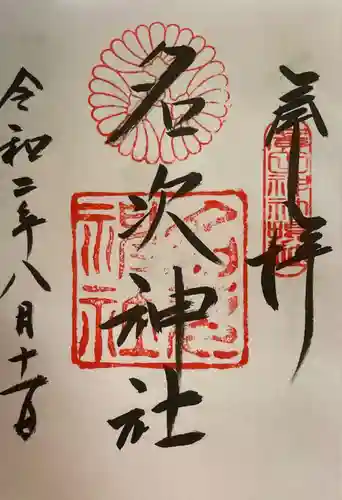 奉拝
名次神社
令和二年八月十一日